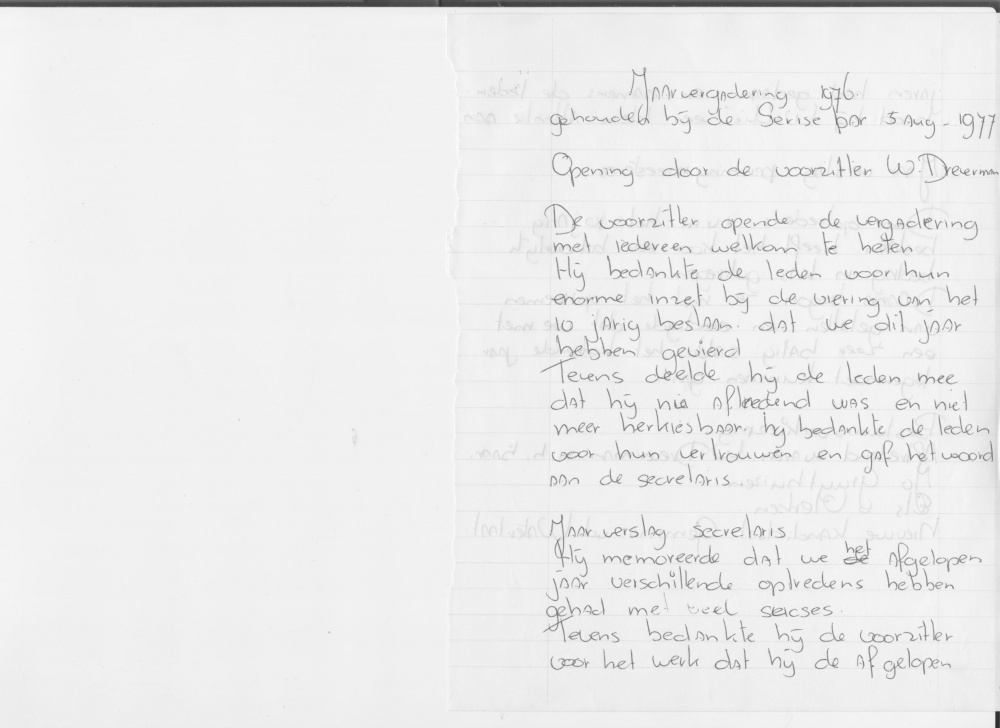 Jaarvergadering 1976.
gehouden bij de Serise bar 5 Aug - 1977
Opening door de voorzitter W. Dreverman
De voorzitter opende de vergadering
met iedereen welkom te heten
Hij bedankte de leden voor hun
enorme inzet bij de viering van het
10 jarig bestaan. dat we dit jaar
hebben gevierd
Tevens deelde hij de leden mee
dat hij nu aftredend was en niet
meer herkiesbaar. hij bedankte de leden
voor hun vertrouwen en gaf het woord
aan de secretaris
Jaarverslag secretaris
Hij memoreerde dat we het afgelopen
jaar verschillende optredens hebben
gehad met veel sukses.
Tevens bedankte hij de voorzitter
voor het werk dat hij de afgelopen